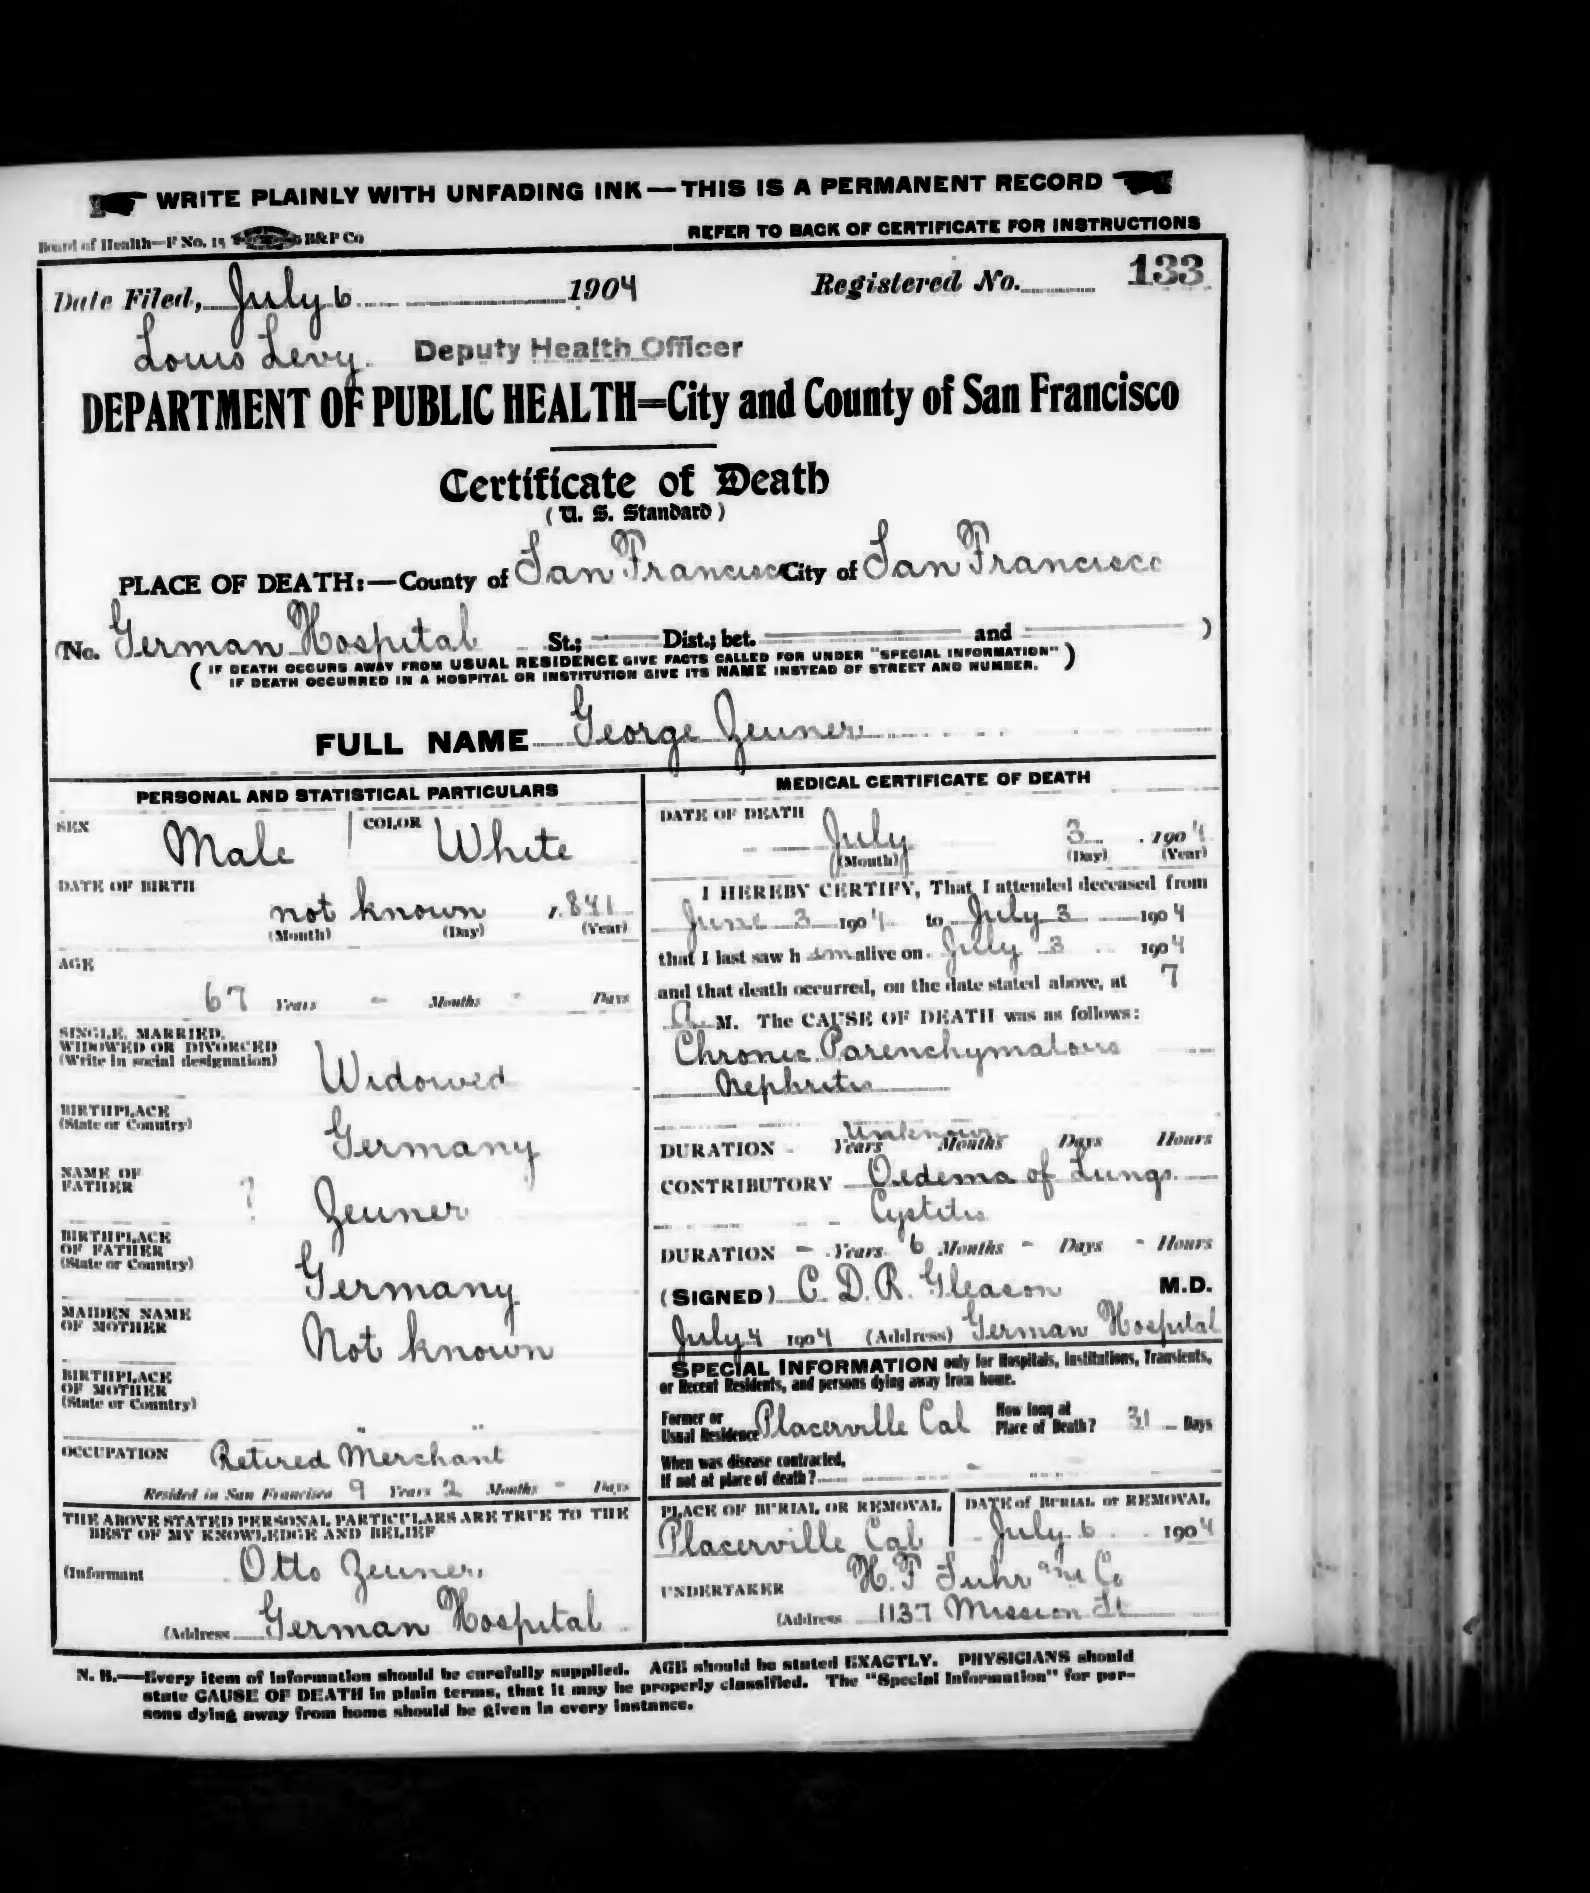 WRITE PLAINLY WITH UNFADING INK — THIS IS A PERMANENT RECORD
Board of Health—F No. 15 B&P Co
REFER TO BACK OF CERTIFICATE FOR INSTRUCTIONS
Date Filed, July 6 1904 Registered No. 133
Louis Levy. Deputy Health Officer
DEPARTMENT OF PUBLIC HEALTH=City and County of San Francisco
Certificate of Death
(U. S. Standard)
PLACE OF DEATH:—County of San Francisco City of San Francisco
(No. German Hospital St.; Dist.; bet. and )
( IF DEATH OCCURS AWAY FROM USUAL RESIDENCE GIVE FACTS CALLED FOR UNDER "SPECIAL INFORMATION" )
IF DEATH OCCURRED IN A HOSPITAL OR INSTITUTION GIVE ITS NAME INSTEAD OF STREET AND NUMBER.
FULL NAME George Zeuner
PERSONAL AND STATISTICAL PARTICULARS
SEX Male COLOR White
DATE OF BIRTH
not known , 841
(Month) (Day) (Year)
AGE
67 Years - Months - Days
SINGLE, MARRIED,
WIDOWED OR DIVORCED
(Write in social designation)
Widowed
BIRTHPLACE
(State or Country)
Germany
NAME OF
FATHER
? Zeuner
BIRTHPLACE
OF FATHER
(State or Country)
Germany
MAIDEN NAME
OF MOTHER
Not known
BIRTHPLACE
OF MOTHER
(State or Country)
" "
OCCUPATION Retired Merchant
Resided in San Francisco 9 Years 2 Months - Days
THE ABOVE STATED PERSONAL PARTICULARS ARE TRUE TO THE
BEST OF MY KNOWLEDGE AND BELIEF
(Informant Otto Zeuner
(Address German Hospital
MEDICAL CERTIFICATE OF DEATH
DATE OF DEATH
July 3 1904
(Month) (Day) (Year)
I HEREBY CERTIFY, That I attended deceased from
June 3 1904 to July 3 1904
that I last saw him alive on July 3 1904
and that death occurred, on the date stated above, at 7
a M. The CAUSE OF DEATH was as follows:
Chronic Parenchymatous
Nephritis
Unknown
DURATION - Years Months Days Hours
CONTRIBUTORY Oedema of Lungs
Cystitis
DURATION - Years 6 Months - Days - Hours
(SIGNED) C. D. R. Gleason M.D.
July 4 1904 (Address) German Hospital
SPECIAL INFORMATION only for Hospitals, Institutions, Transients,
or Recent Residents, and persons dying away from home.
Former or
Usual Residence Placerville Cal
How long at
Place of Death? 31 Days
When was disease contracted,
If not at place of death? -
PLACE OF BURIAL OR REMOVAL
Placerville Cal
DATE of BURIAL or REMOVAL
July 6 1904
UNDERTAKER H. F Suhr and Co
(Address 1137 Mission St
N. B.—Every item of information should be carefully supplied. AGE should be stated EXACTLY. PHYSICIANS should
state CAUSE OF DEATH in plain terms, that it may be properly classified. The "Special Information" for per-
sons dying away from home should be given in every instance.